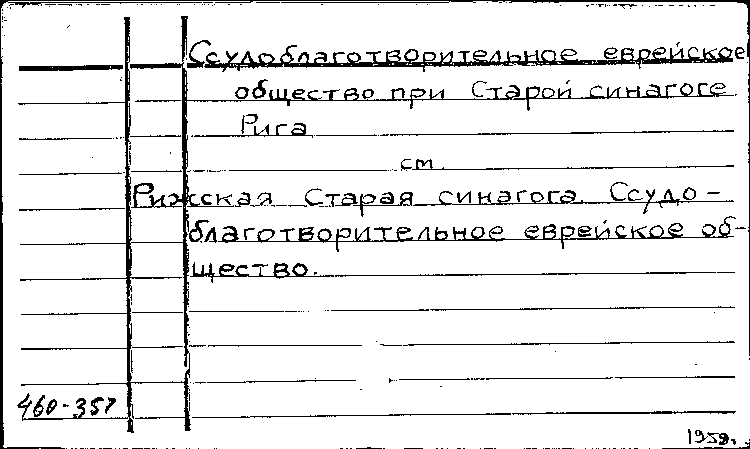 Ссудоблаготворительное еврейское
общество при Старой синагоге
Рига
см.
Рижская Старая синагога. Ссудо-
благотворительное еврейское об-
щество.
460-357